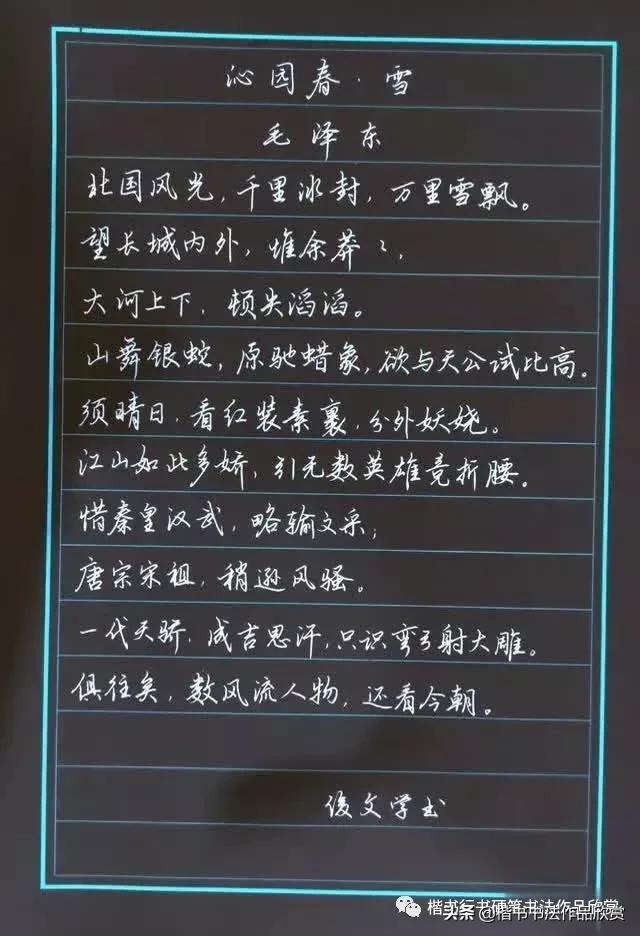 沁园春·雪
毛泽东
北国风光，千里冰封，万里雪飘。
望长城内外，惟余莽々，
大河上下，顿失滔滔。
山舞银蛇，原驰蜡象，欲与天公试比高。
须晴日，看红装素裹，分外妖娆。
江山如此多娇，引无数英雄竞折腰。
惜秦皇汉武，略输文采；
唐宗宋祖，稍逊风骚。
一代天骄，成吉思汗，只识弯弓射大雕。
俱往矣，数风流人物，还看今朝。
俊文学书
楷书行书硬笔书法作品欣赏
头条@楷书书法作品欣赏